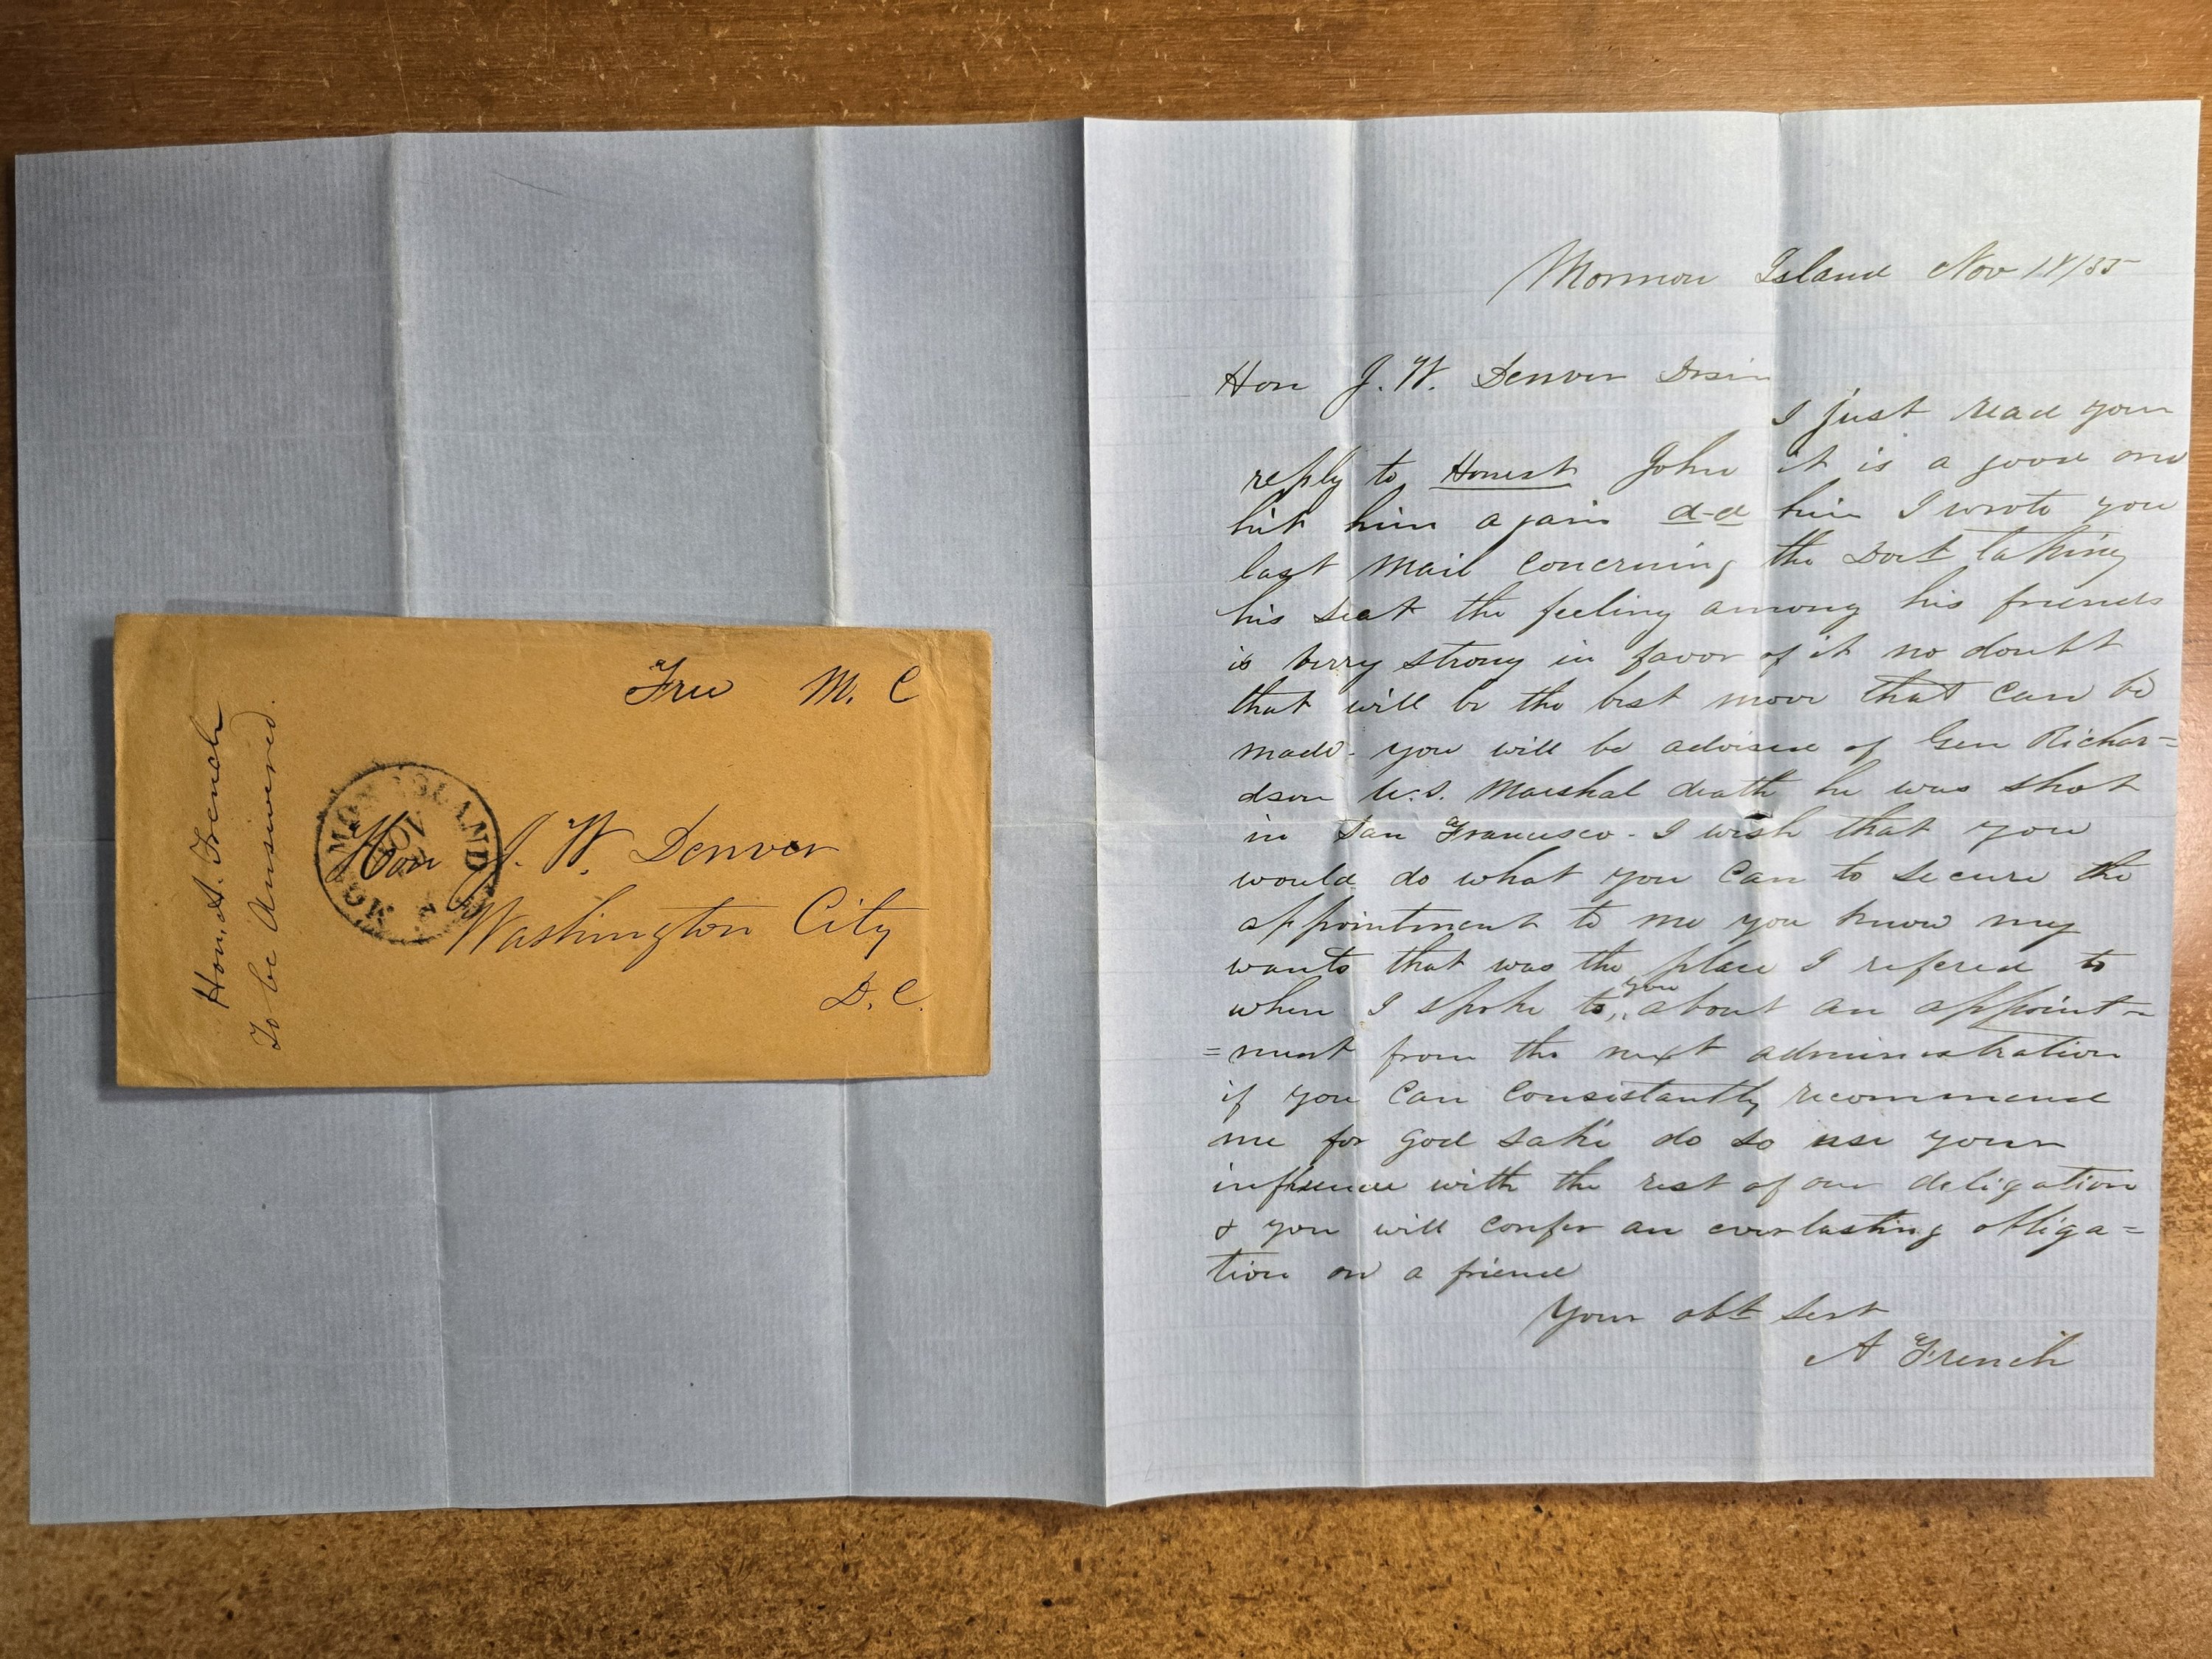 Free M. C
Hon. A. French
To be Answered.
MORMON ISLAND
NOV
Hon J. W. Denver
Washington City
D. C.
Mormon Island Nov 18/55
Hon J. W. Denver Dr sir
I just read your
reply to Honest John it is a good one
hit him again d-d him I wrote you
last mail concerning the Doct taking
his seat the feeling among his friends
is verry strong in favor of it no doubt
that will be the best move that can be
made. you will be advised of Gen Richar=
dson U.S. Marshal death he was shot
in San Francisco - I wish that you
would do what you can to secure the
appointment to me you know my
wants that was the place I refered to
when I spoke to you about an appoint-
=ment from the next administration
if you can consistantly recommend
me for god sake do so use your
influence with the rest of our deligation
& you will confer an everlasting obliga=
tion on a friend
Your obt sert
A French